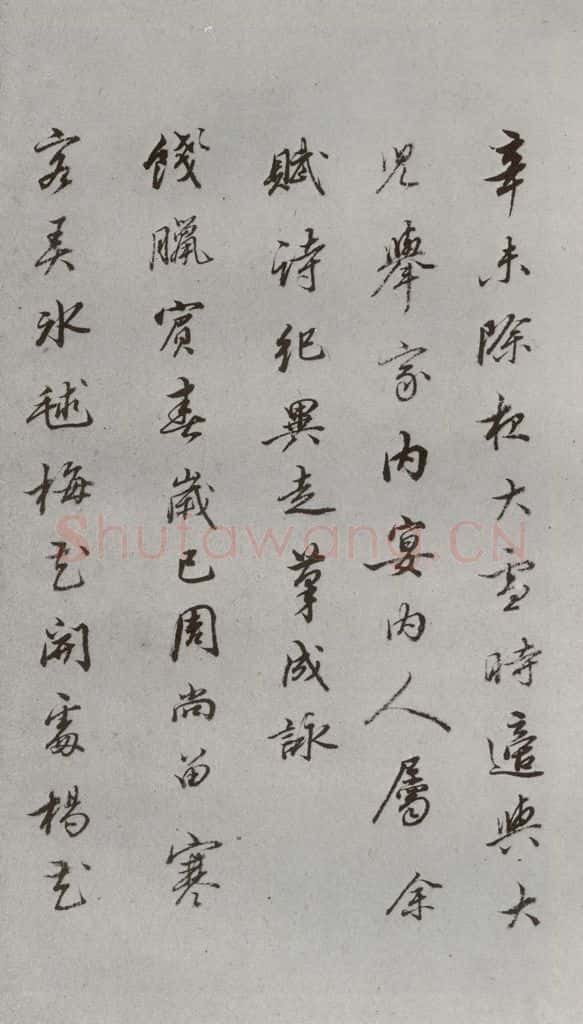 辛未除夜大雪時適與大
兒舉家内宴内人屬余
賦詩紀異走筆成詠
餞臘賓春歲已周尚留寒
客美冰毬梅花開處楊花
Shufawang.CN